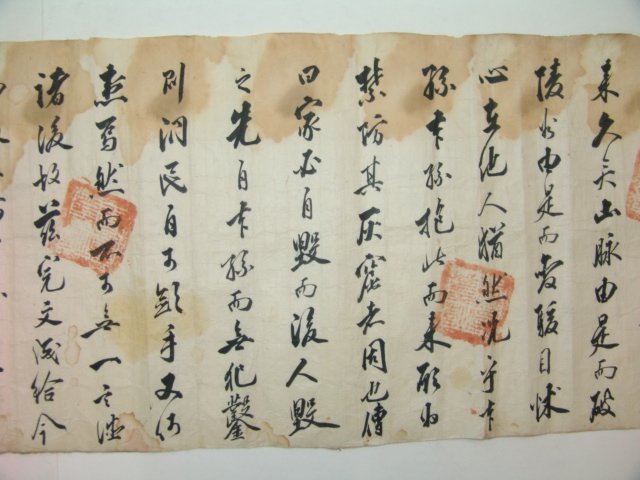 來久矣山脉由是而破
陵谷由是而變駭目怵
心在他人猶然況乎本
孫本孫抱此而來願爲
禁防其灰窟者固也傳
曰家必自毀而後人毀
之先自本孫而無犯鑿
則洞民自可斂手又何
患焉然而不可無一言憑
諸後故玆完文成給今